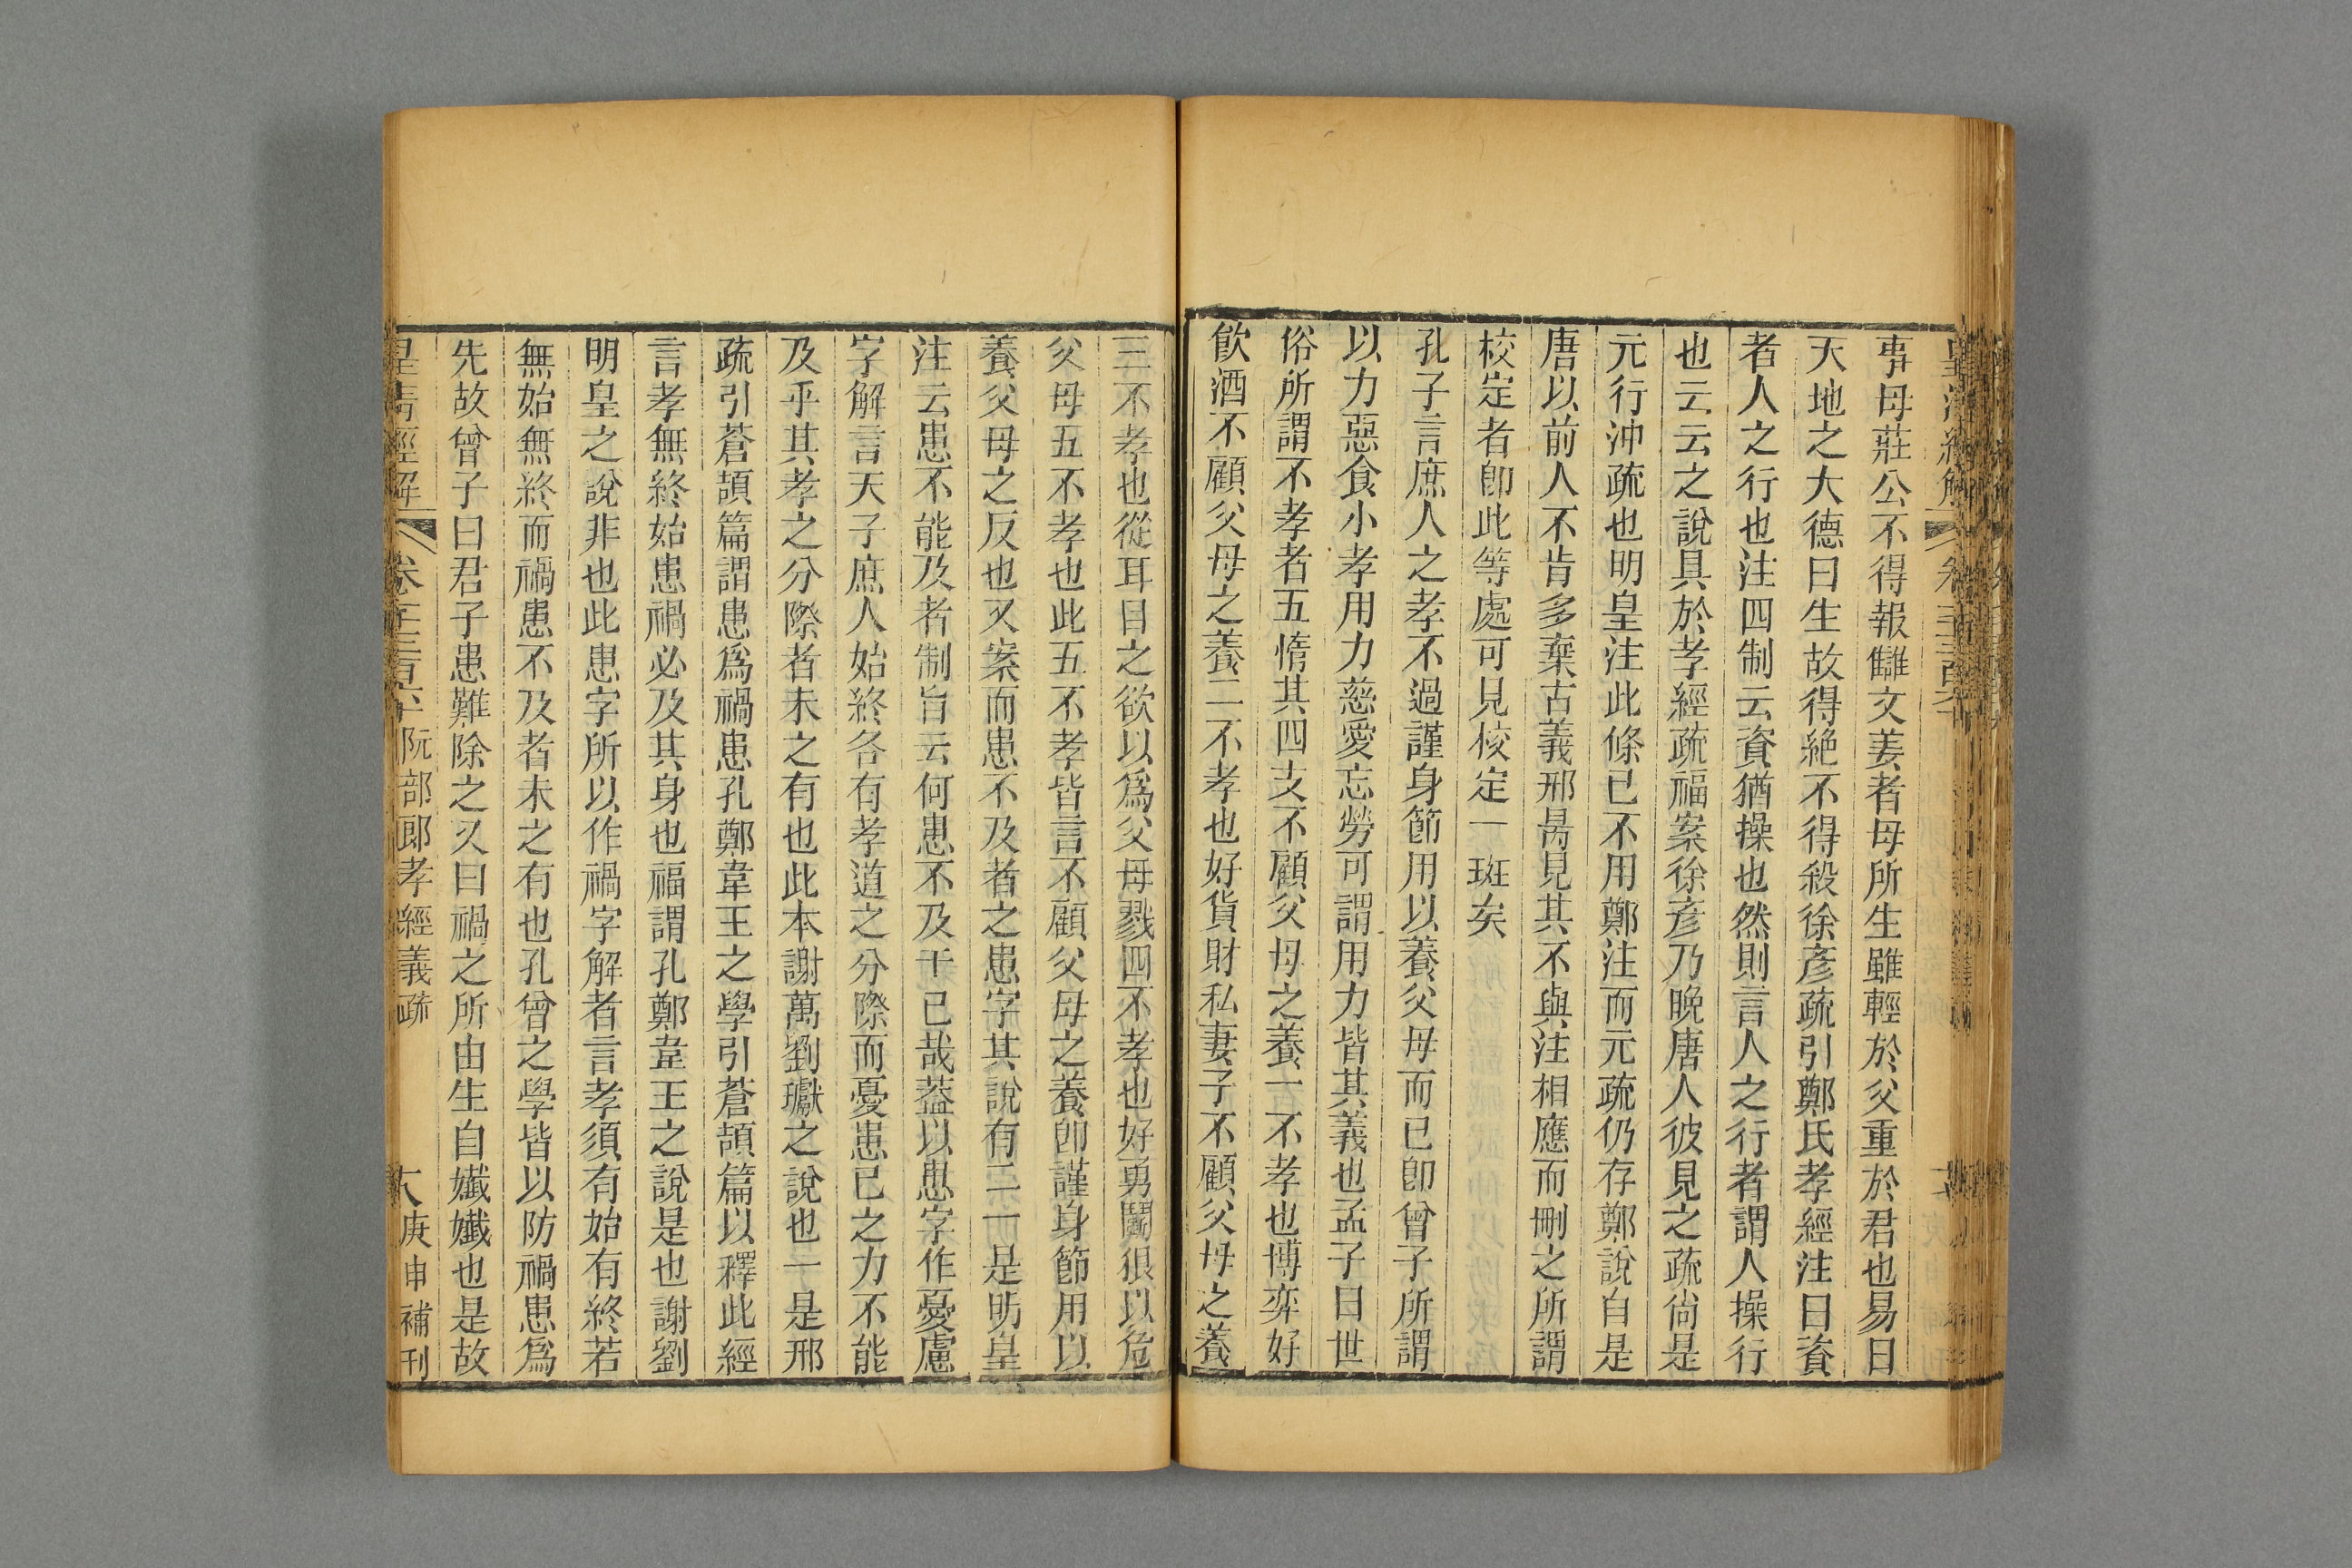 事母莊公不得報讎文姜者母所生雖輕於父重於君也易曰
天地之大德曰生故得絕不得殺徐彥疏引鄭氏孝經注曰資
者人之行也注四制云資猶操也然則言人之行者謂人操行
也云云之說具於孝經疏福案徐彥乃晚唐人彼見之疏尙是
元行沖疏也明皇注此條已不用鄭注而元疏仍存鄭說自是
唐以前人不肯多棄古義邢昺見其不與注相應而刪之所謂
校定者卽此等處可見校定一斑矣
孔子言庶人之孝不過謹身節用以養父母而已卽曾子所謂
以力惡食小孝用力慈愛忘勞可謂用力皆其義也孟子曰世
俗所謂不孝者五惰其四支不顧父母之養一不孝也博弈好
飮酒不顧父母之養二不孝也好貨財私妻子不顧父母之養
三不孝也從耳目之欲以爲父母戮四不孝也好勇鬭很以危
父母五不孝也此五不孝皆言不顧父母之養卽謹身節用以
養父母之反也又案而患不及者之患字其說有二一是明皇
注云患不能及者制旨云何患不及于已哉葢以患字作憂慮
字解言天子庶人始終各有孝道之分際而憂患已之力不能
及乎其孝之分際者未之有也此本謝萬劉瓛之說也一是邢
疏引蒼頡篇謂患爲禍患孔鄭韋王之學引蒼頡篇以釋此經
言孝無終始患禍必及其身也福謂孔鄭韋王之說是也謝劉
明皇之說非也此患字所以作禍字解者言孝須有始有終若
無始無終而禍患不及者未之有也孔曾之學皆以防禍患爲
先故曾子曰君子患難除之又曰禍之所由生自孅孅也是故
皇淸經解 卷 阮部郞孝經義疏 庚申補刊